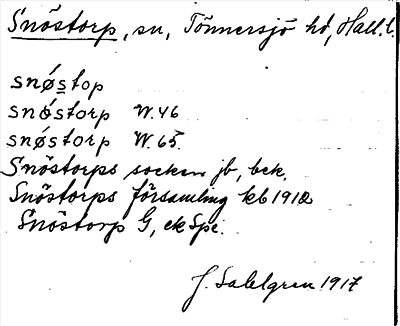 Snöstorp, sn, Tönnersjö hd, Hall. l.
snǿstop
snǿstorp W. 46
snǿstorp W. 65.
Snöstorps socken jb, bek.
Snöstorps församling kb 1910
Snöstorp G, ek Spe.
J. Sahlgren 1917